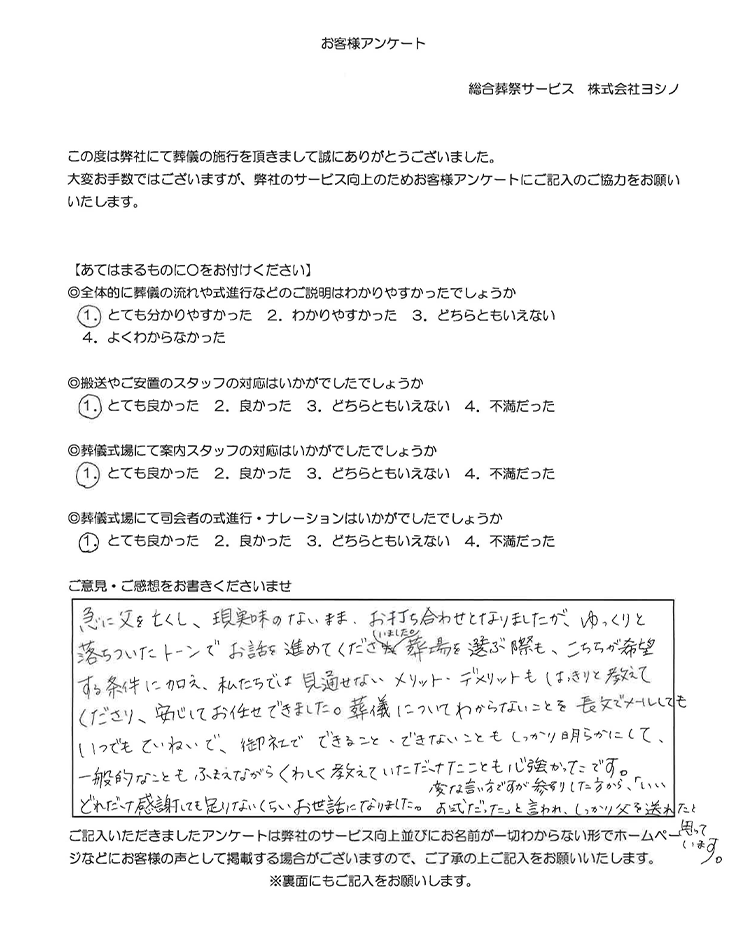 お客様アンケート
総合葬祭サービス　株式会社ヨシノ
この度は弊社にて葬儀の施行を頂きまして誠にありがとうございました。
大変お手数ではございますが、弊社のサービス向上のためお客様アンケートにご記入のご協力をお願い
いたします。
【あてはまるものに〇をお付けください】
◎全体的に葬儀の流れや式進行などのご説明はわかりやすかったでしょうか
1．とても分かりやすかった　2．わかりやすかった　3．どちらともいえない
4．よくわからなかった
◎搬送やご安置のスタッフの対応はいかがでしたでしょうか
1．とても良かった　2．良かった　3．どちらともいえない　4．不満だった
◎葬儀式場にて案内スタッフの対応はいかがでしたでしょうか
1．とても良かった　2．良かった　3．どちらともいえない　4．不満だった
◎葬儀式場にて司会者の式進行・ナレーションはいかがでしたでしょうか
1．とても良かった　2．良かった　3．どちらともいえない　4．不満だった
ご意見・ご感想をお書きくださいませ
急に父を亡くし、現実味のないまま、お打ち合わせとなりましたが、ゆっくりと
落ちついたトーンでお話を進めてくださいました。葬場を選ぶ際も、こちらが希望
する条件に加え、私たちでは見通せないメリット・デメリットもはっきりと教えて
くださり、安心してお任せできました。葬儀についてわからないことを長文でメールしても
いつでもていねいで、御社でできること・できないこともしっかり明らかにして、
一般的なこともふまえながらくわしく教えていただけたことも心強かったです。
どれだけ感謝しても足りないくらいお世話になりました。
変な言い方ですが参列した方から、「いい
お式だった」と言われ、しっかり父を送れたと
思って
います。
ご記入いただきましたアンケートは弊社のサービス向上並びにお名前が一切わからない形でホームペー
ジなどにお客様の声として掲載する場合がございますので、ご了承の上ご記入をお願いいたします。
※裏面にもご記入をお願いします。